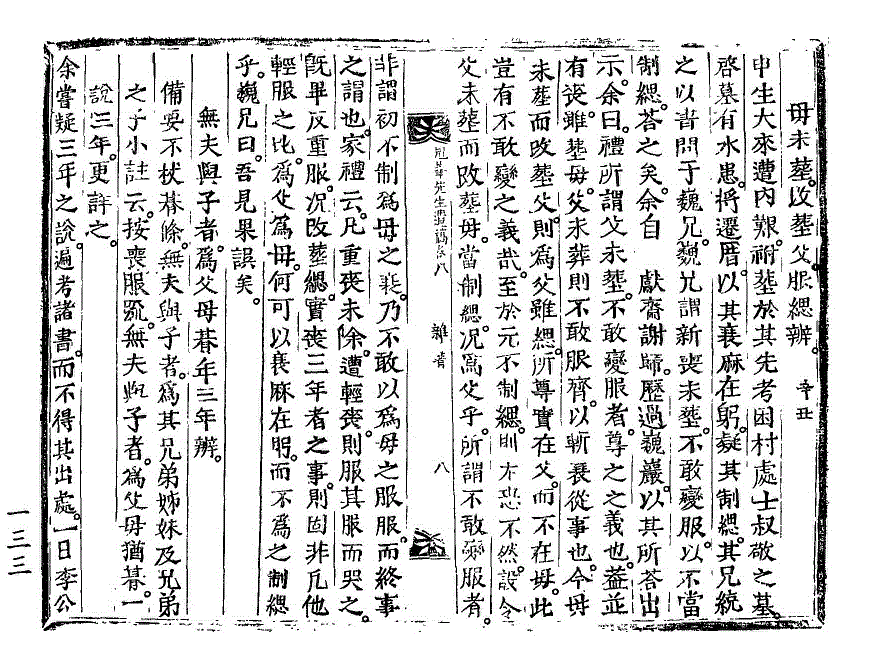 母未葬改葬父服緦辨。辛丑
申生大來遭內艱。祔葬於其先考困村處士叔敬之墓。
啓墓有水患。將遷厝。以其衰麻在躬。疑其制緦。其兄統
之以書問于巍兄。巍兄謂新喪未葬。不敢變服。以不當
制緦。答之矣。余自 獻齋謝歸。歷過巍巖。以其所答出
示。余曰。禮所謂父未葬。不敢變服者。尊之之義也。蓋並
有喪。雖葬母。父未葬則不敢服齊。以斬衰從事也。今母
未葬而改葬父。則爲父雖緦。所尊實在父。而不在母。此
豈有不敢變之義哉。至於元不制緦。則尤恐不然。設令
父未葬而改葬母。當制緦。況爲父乎。所謂不敢變服者。
先生遺稿卷八 雜著 八
非謂初不制爲母之衰。乃不敢以爲母之服服。而終事
之謂也。家禮云。凡重喪未除。遭輕喪。則服其服而哭之。
旣畢反重服。況改葬緦。實喪三年者之事。則固非凡他
輕服之比。爲父爲母。何可以衰麻在躬。而不爲之制緦
乎。巍兄曰。吾見果誤矣。
無夫與子者。爲父母朞年三年辨。
備要不杖朞條。無夫與子者。爲其兄弟姊妹及兄弟
之子小註云。按喪服疏。無夫與子者。爲父母猶朞。一
說三年。更詳之。
余嘗疑三年之說。遍考諸書。而不得其出處。一日李公
一三三